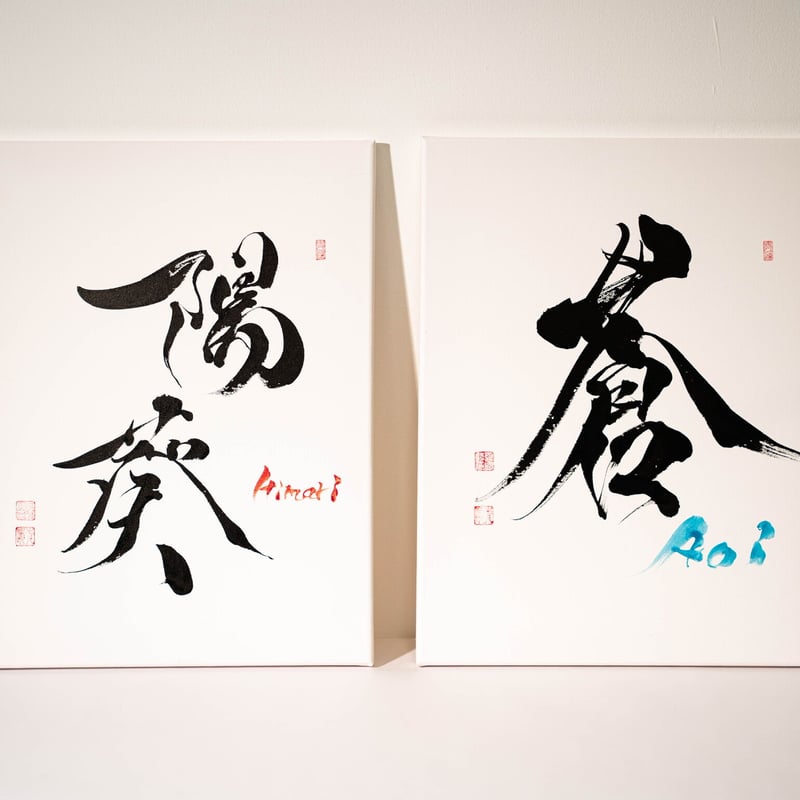 陽
葵
Himari
蒼
Aoi